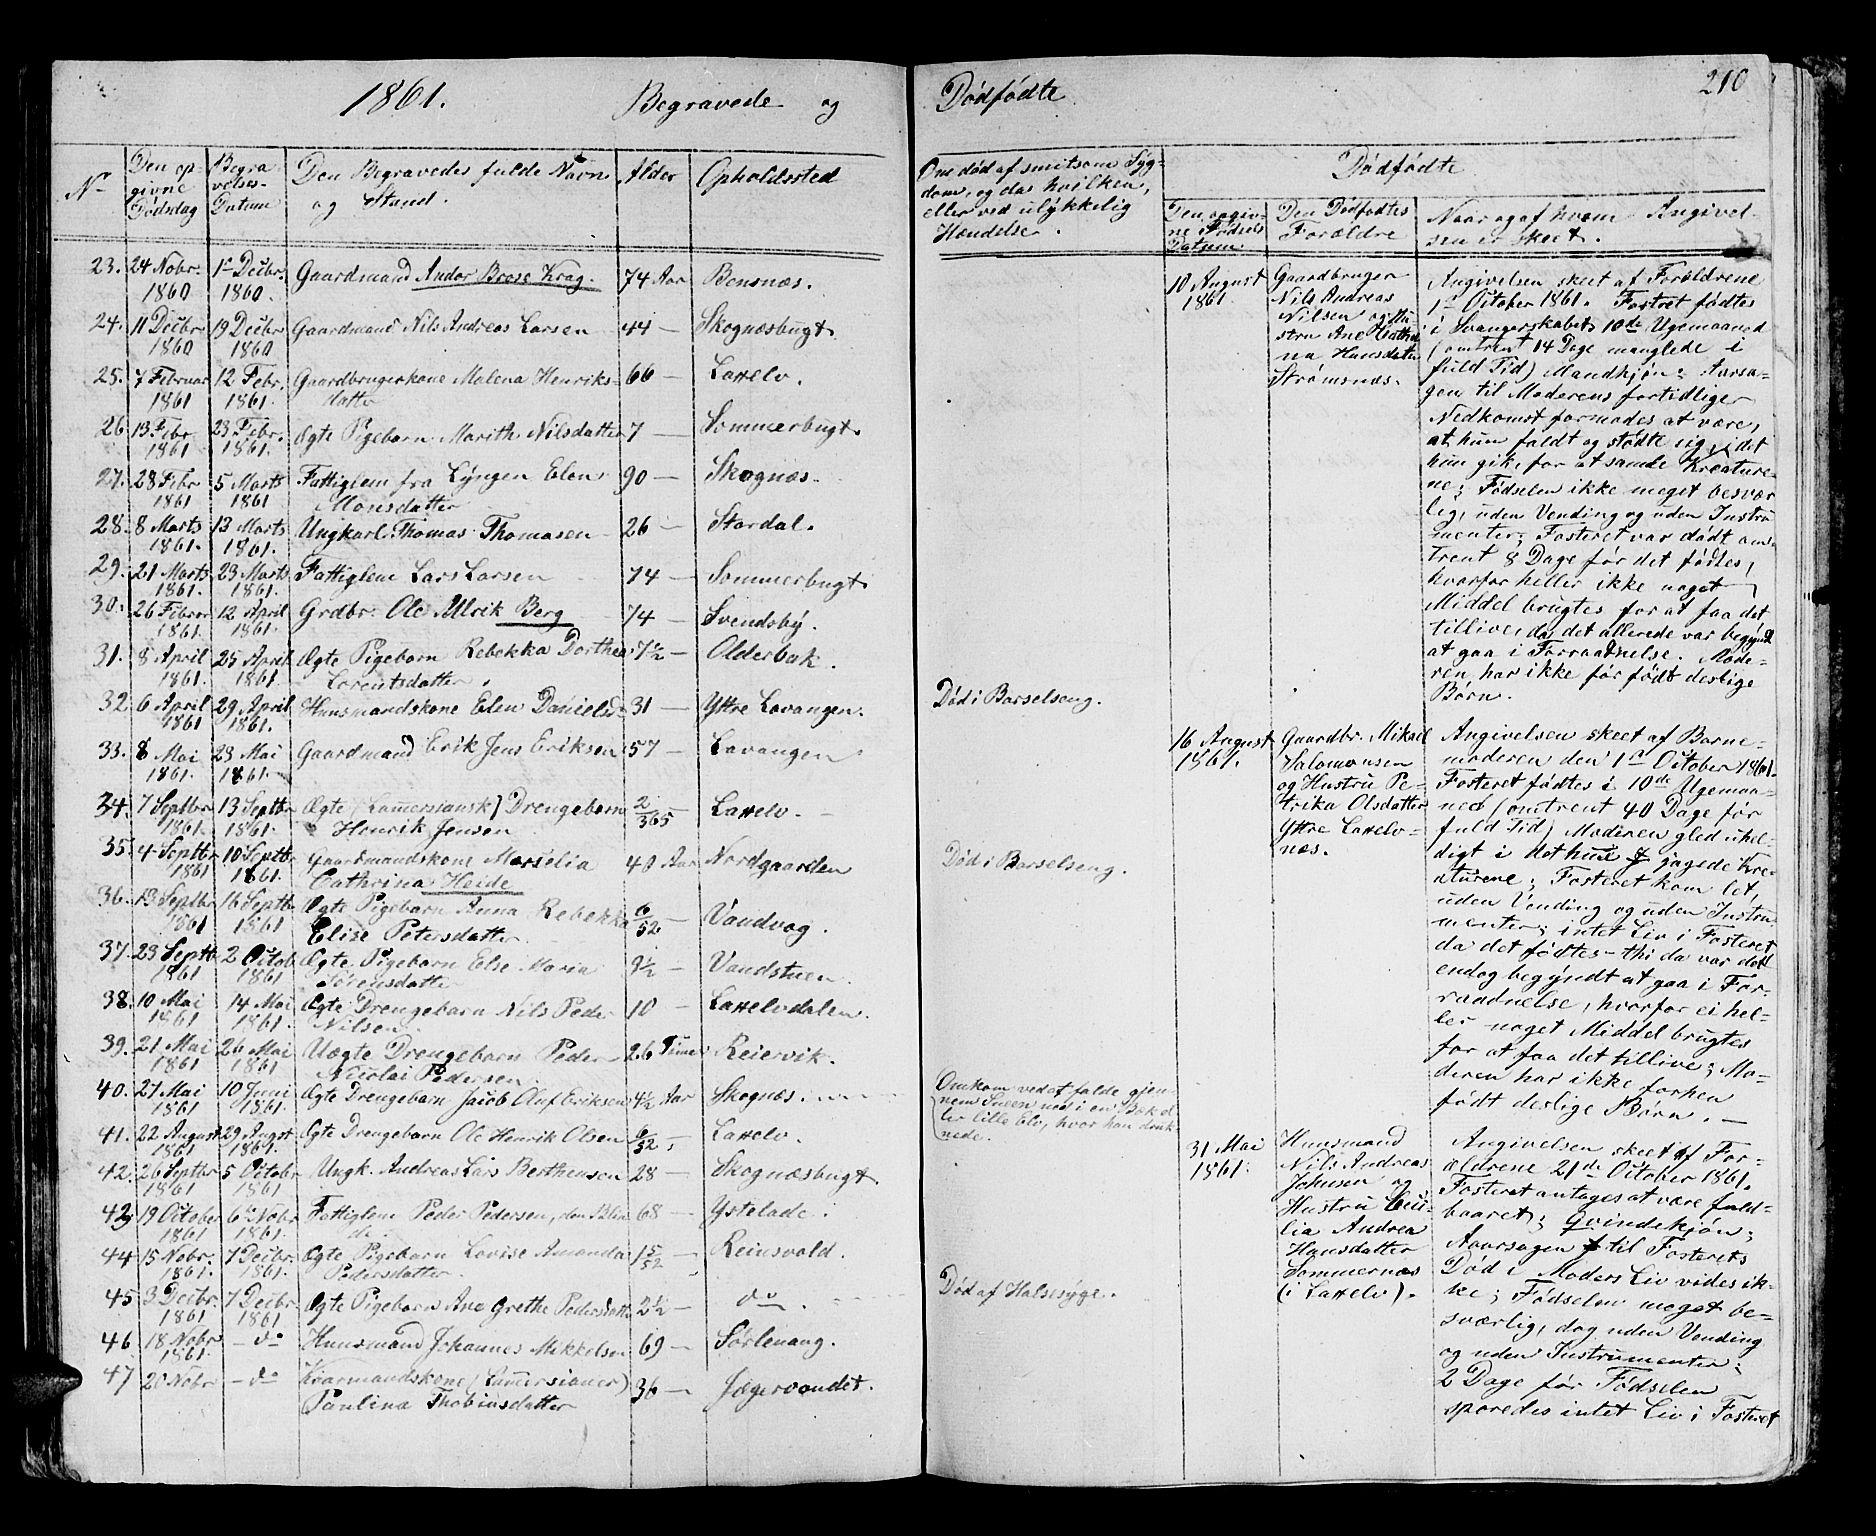 1861. Begravede og
Dødfødte
210
No
Den op-
givne
Dødsdag
Begra-
velses-
Datum
Den Begravedes fulde Navn
og Stand.
Alder
Opholdssted
Om død af smitsom Syg-
dom, og da hvilken,
eller ved ulykkelig
Hændelse.
Dødfødte
Den opgiv-
ne Fødsels
Datum
Den Dødfødtes
Forældre
Naar og af hvem Angivel-
sen er skeet.
23. 24 Nobr. 1860 1e Decbr. 1860. Gaardmand Andor Brose Krog. 74 Aar Bensnæs.
24. 11 Decbr 1860 19 Decbr 1860 Gaardmand Nils Andreas Larsen 44 — Skognæsbugt.
25. 7 Februar 1861 12 Febr. 1861. Gaardbrugerkone Malena Henriks-
datter 66 — Laxelv.
26 13 Febr 1861 23 Febr. 1861. Ægte Pigebarn Marith Nilsdatter 7 — Sommerbugt.
27. 28 Febr 1861 5 Marts 1861 Fattiglem fra Lyngen Elen
Monsdatter 90 — Skognæs.
28. 8 Marts 1861. 13 Marts 1861. Ungkarl Thomas Thomasen 26 — Stordal.
29. 21 Marts 1861. 23 Marts 1861. Fattiglem Lars Larsen 74 — Sommerbugt.
30. 26 Februar 1861. 12 April 1861. Grdbr. Ole Ulrik Berg 74 — Svendsby.
31. 8 April 1861. 25 April 1861. Ægte Pigebarn Rebekka Dorthea
Lorentsdatter. 7½ — Olderbak.
32. 6 April 1861 29 April 1861. Huusmandskone Elen Danielsd. 31 — Yttre Lavangen. Død i Barselseng.
33. 8 Mai 1861. 23 Mai 1861. Gaardmand Erik Jens Eriksen 57 — Lavangen
34. 7 Septbr 1861. 13 Septbr 1861. Ægte (Lammersiansk) Drengebarn
Henrik Jensen 2/365 Laxelv.
35. 4 Septbr 1861 10 Septbr 1861. Gaardmandskone Marselia
Cathrina Heide 40 Aar Nordgaarden Død i Barselseng.
36. 13 Septbr 1861 16 Septbr 1861 Ægte Pigebarn Anna Rebekka
Elise Petersdatter 6/52 — Vandvog.
37. 23 Septb 1861 2 Octob 1861 Ægte Pigebarn Else Maria
Sørensdatter 9½ — Vandstuen.
38. 10 Mai 1861 14 Mai 1861. Ægte Drengebarn Nils Peder
Nilsen 10 — Laxelvdalen.
39. 21 Mai 1861 26 Mai 1861 Uægte Drengebarn Peder
Nicolai Pedersen. 26 Timer Reiervik.
40. 27 Mai 1861 10 Juni 1861. Ægte Drengebarn Jacob Oluf Eriksen 4½ Aar Skognæs. Omkom ved at falde gjen-
nem Sneen ned i en Bæk el-
ler lille Elv, hvor han druk-
nede.
41. 22 August 1861 29 Augst 1861. Ægte Drengebarn Ole Henrik Olsen 6/52 — Laxelv.
42. 26 Septbr 1861 5 Octobr 1861 Ungk. Andreas Lars Berthensen 28 — Skognæsbugt.
43 19 October 1861 6e Nobr 1861. Fattiglem Peder Pedersen, den Blin-
de. 68 — Ystelade.
44 15 Nobr. 1861. 7 Decbr. 1861. Ægte Pigebarn Lovise Amanda
Pedersdatter. 1 5/52 — Reinsvold.
45 3 Decbr. 1861 7 Decbr. 1861 Ægte Pigebarn Ane Grethe Pedersdatter 2½ — do — Død af Halssyge.
46 18 Nobr 1861. — do Huusmand Johannes Mikkelsen 69 — Sørlenang.
47 20 Nobr — do Kvarmandskone (Lammersianer)
Paulina Thobiasdatter 36 — Jægervandet.
10 August
1861.
Gaardbruger
Nils Andreas
Nilsen og Hu-
stru Ane Cathri-
na Hansdatter
Strømsnæs.
Angivelsen skeet af Forældrene
1e October 1861. Fostret fødtes
i Svangerskabets 10de Ugemaaned
(omtrent 14 Dage manglede i
fuld Tid) Mandkjøn; Aarsa-
gen til Moderens fortidliger
Nedkomst formodes at være,
at hun faldt og stødte sig, idet
hun gik, for at samle Kreature-
ne; Fødselen ikke meget besvær-
lig, uden Vending og uden Instru-
menter; Fosteret var dødt om-
trent 8 Dage før det fødtes,
hvorfor heller ikke noget
Middel brugtes for at faa det
tillive, da det allerede var begyndt
at gaa i Forraadnelse. Mode-
ren, har ikke før født deslige
Børn.
16 August
1861.
Gaardbr. Mikael
Salomonsen
og Hustru Pe-
trika Olsdatter
Yttre Laxelv-
næs.
Angivelsen skeet af Barne-
moderen den 1e October 1861.
Fosteret fødtes i 10de Ugemaa-
ned (omtrent 40 Dage før
fuld Tid) Moderen gled uhel-
digt i det hun jagede Kre-
aturene; Fosteret kom let,
uden Vending og uden Instru-
menter; intet Liv i Fosteret
da det fødtes - thi da var det
endog begyndt at gaa i For-
raadnelse, hvorfor ei hel-
ler noget Middel brugtes
for at faa det tillive; Mo-
deren har ikke forhen
født deslige Børn. —
31 Mai
1861.
Huusmand
Nils Andreas
Johnsen og
Hustru Ceci-
lia Andrea
Hansdatter
Sommernæs
(i Laxelv).
Angivelsen skeet af For-
ældrene 21de October 1861.
Fosteret antages at være fuld-
baaret; Qvindekjøn;
Aarsagen til Fosterets
Død i Moders Liv vides ik-
ke; Fødselen meget be-
sværlig, dog uden Vending
og uden Instrumenter;
2 Dage før Fødselen
sporedes intet Liv i Fosteret